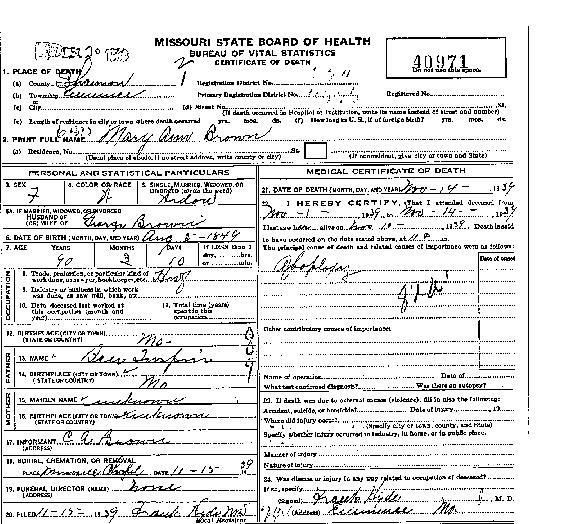 MISSOURI STATE BOARD OF HEALTH
BUREAU OF VITAL STATISTICS
CERTIFICATE OF DEATH
40971
Do not use this space.
1. PLACE OF DEATH
(a) County Shannon Registration District No.
(b) Township Eminence Primary Registration District No. Registered No.
(c) City (d) Street No. St.
(If death occurred in Hospital or Institution, write its name instead of street and number)
(e) Length of residence in city or town where death occurred yrs. mos. ds. (f) How long in U. S., if of foreign birth? yrs. mos. ds.
2. PRINT FULL NAME Mary Ann Brown
(a) Residence, No. St.
(Usual place of abode, if no street address, write county or city) (If nonresident, give city or town and State)
PERSONAL AND STATISTICAL PARTICULARS
3. SEX F
4. COLOR OR RACE W
5. SINGLE, MARRIED, WIDOWED, OR DIVORCED (write the word) Widow
5A. IF MARRIED, WIDOWED, OR DIVORCED
HUSBAND OF
(OR) WIFE OF George Brown
6. DATE OF BIRTH (MONTH, DAY, AND YEAR) Aug 2 - 1849
7. AGE YEARS MONTHS DAYS If LESS than 1
90 3 10 day, hrs.
or min.
OCCUPATION
8. Trade, profession, or particular kind of
work done, sawyer, bookkeeper, etc.
9. Industry or business in which work
was done, as saw mill, bank, etc.
10. Date deceased last worked at
this occupation (month and
year)
11. Total time (years)
spent in this
occupation
12. BIRTHPLACE (CITY OR TOWN)
(STATE OR COUNTRY) Mo
FATHER
13. NAME
14. BIRTHPLACE (CITY OR TOWN)
(STATE OR COUNTRY) Mo
MOTHER
15. MAIDEN NAME unknown
16. BIRTHPLACE (CITY OR TOWN) unknown
(STATE OR COUNTRY)
17. INFORMANT Brown
(ADDRESS)
18. BURIAL, CREMATION, OR REMOVAL
PLACE DATE 11-15- 39
19. FUNERAL DIRECTOR (NAME) none
(ADDRESS)
20. FILED 11-15- 1939 Frank Hyde MD
Local Registrar
MEDICAL CERTIFICATE OF DEATH
21. DATE OF DEATH (MONTH, DAY, AND YEAR) Nov-14- 1939
22. I HEREBY CERTIFY, That I attended deceased from
Nov-1- 1939, to Nov-14- 1939
I last saw alive on Nov 10- 1939. Death is said
to have occurred on the date stated above, at
The principal cause of death and related causes of importance were as follows:
Date of onset
Apoplexy
Other contributory causes of importance:
Name of operation Date of
What test confirmed diagnosis? Was there an autopsy?
23. If death was due to external causes (violence), fill in also the following:
Accident, suicide, or homicide? Date of injury , 19
Where did injury occur?
(Specify city or town, county, and State)
Specify whether injury occurred in industry, in home, or in public place.
Manner of injury
Nature of injury
24. Was disease or injury in any way related to occupation of deceased?
If so, specify
(Signed) Frank Hyde , M. D.
Eminence Mo